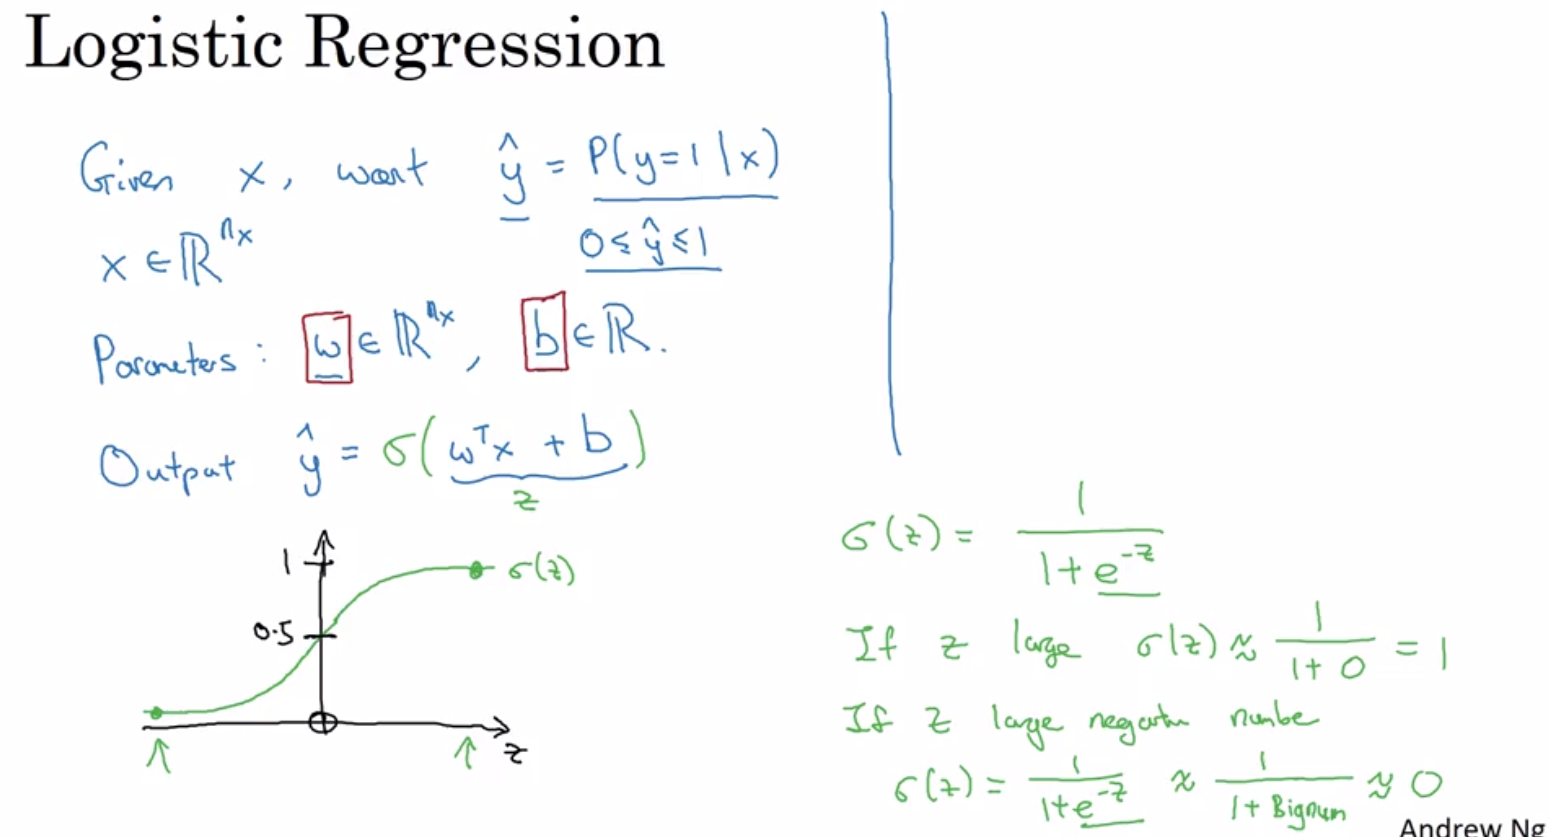 Logistic Regression
Given x, want ŷ = P(y=1|x)
0≤ŷ≤1
x ∈ ℝⁿˣ
Parameters: w ∈ ℝⁿˣ, b ∈ ℝ.
Output ŷ = σ(wᵀx + b)
z
1
σ(z)
0.5
z
σ(z) = 1/(1+e^-z)
If z large σ(z) ≈ 1/(1+0) = 1
If z large negative number
σ(z) = 1/(1+e^-z) ≈ 1/(1+Bignum) ≈ 0
Andrew Ng